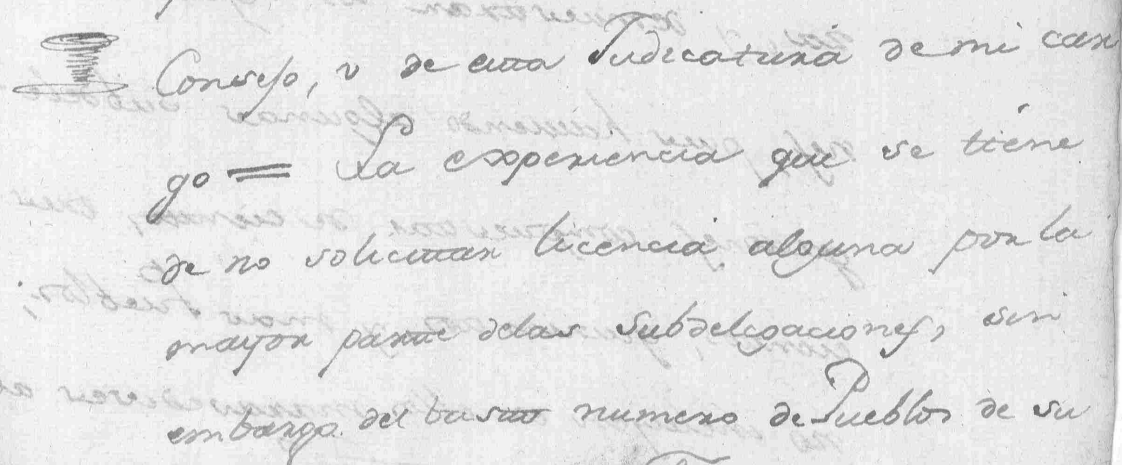 Consejo, v de esta Judicatura de mi car
go = La experiencia que se tiene
de no solicitar licencia alguna por la
mayor parte delas Subdelegaciones, sin
embargo del basto numero de Pueblos de su